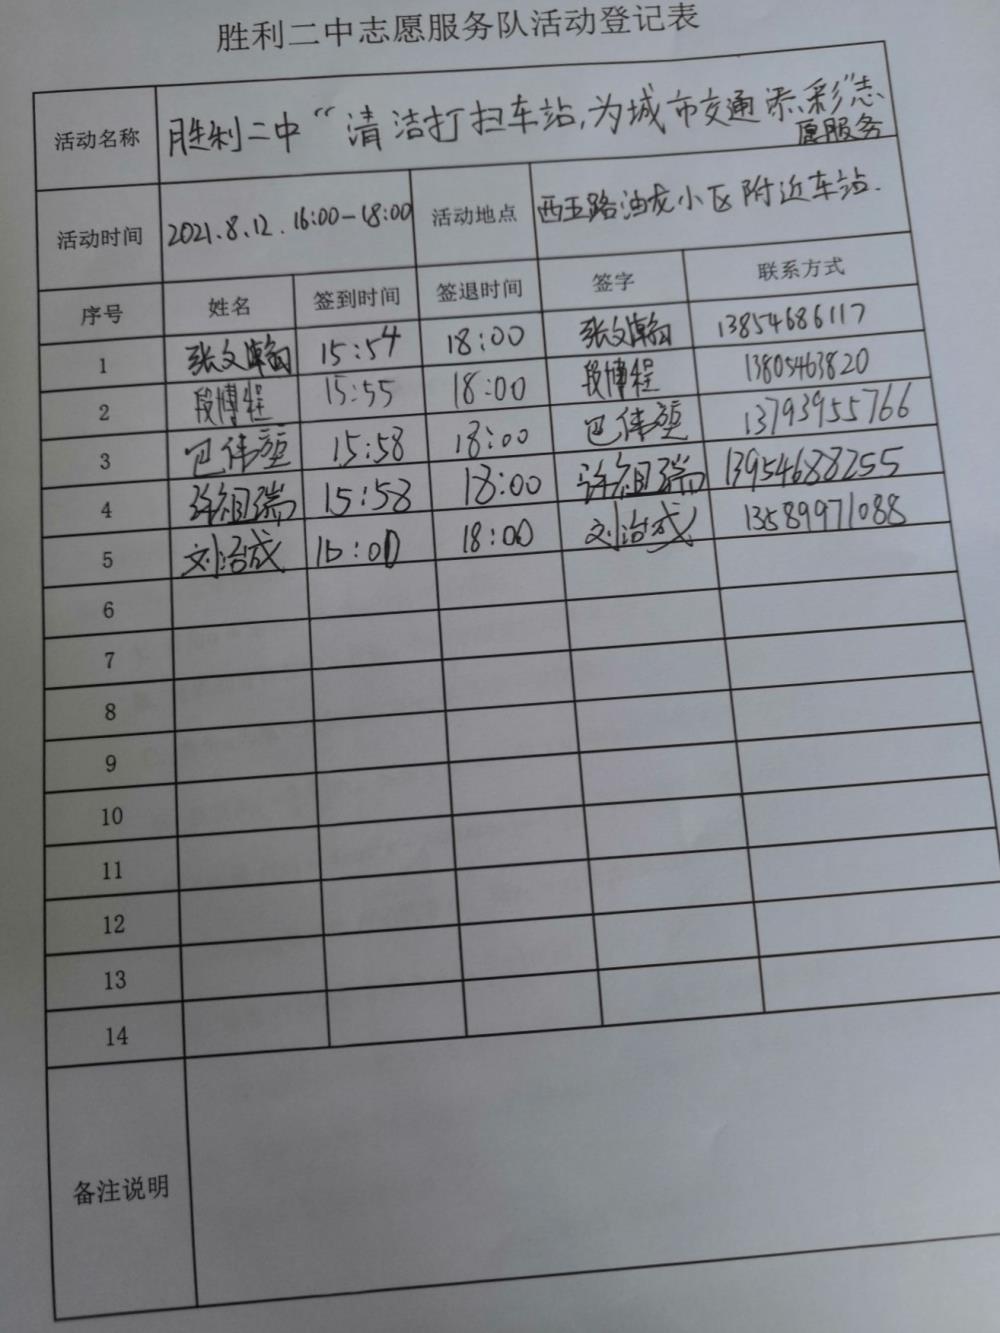 胜利二中志愿服务队活动登记表
活动名称 胜利二中“清洁打扫车站,为城市交通添彩”志
愿服务
活动时间 2021.8.12. 16:00-18:00 活动地点 西五路油龙小区附近车站.
序号 姓名 签到时间 签退时间 签字 联系方式
1 张文瀚 15:54 18:00 张文瀚 13854686117
2 段博程 15:55 18:00 段博程 13805463820
3 巴伟堃 15:58 18:00 巴伟堃 13793955766
4 许祖瑞 15:58 18:00 许祖瑞 13954688255
5 刘治成 16:00 18:00 刘治成 13589971088
6
7
8
9
10
11
12
13
14
备注说明